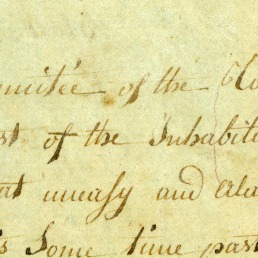 mmittee of the
st of the Inhabit
at uneasy and ala
s Some time past